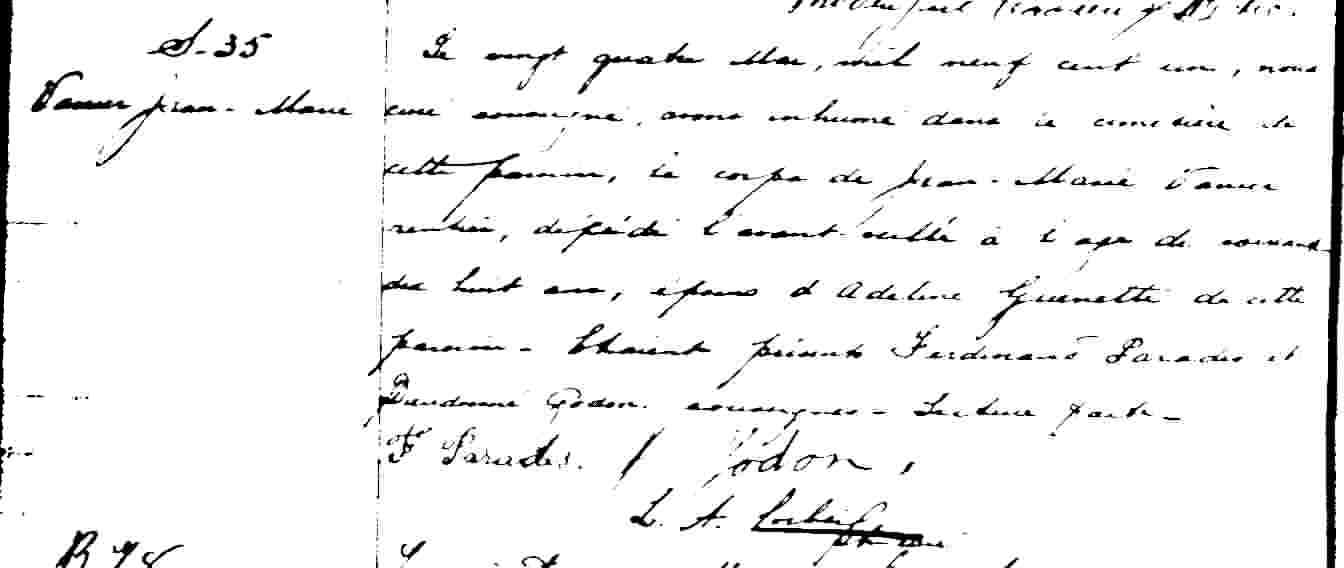 S-35
Vanier Jean-Marie
Le vingt quatre Mai, mil neuf cent un, nous
curé soussigné, avons inhumé dans le cimetière de
cette paroisse, le corps de Jean-Marie Vanier
rentier, décédé l'avant veille à l'age de soixante
dix huit ans, époux d'Adeline Guenette de cette
paroisse - Etaient présents Ferdinand Paradis et
Dieudonné Godon soussignés - Lecture faite -
F Paradis. Godon,
L. A.
B 78